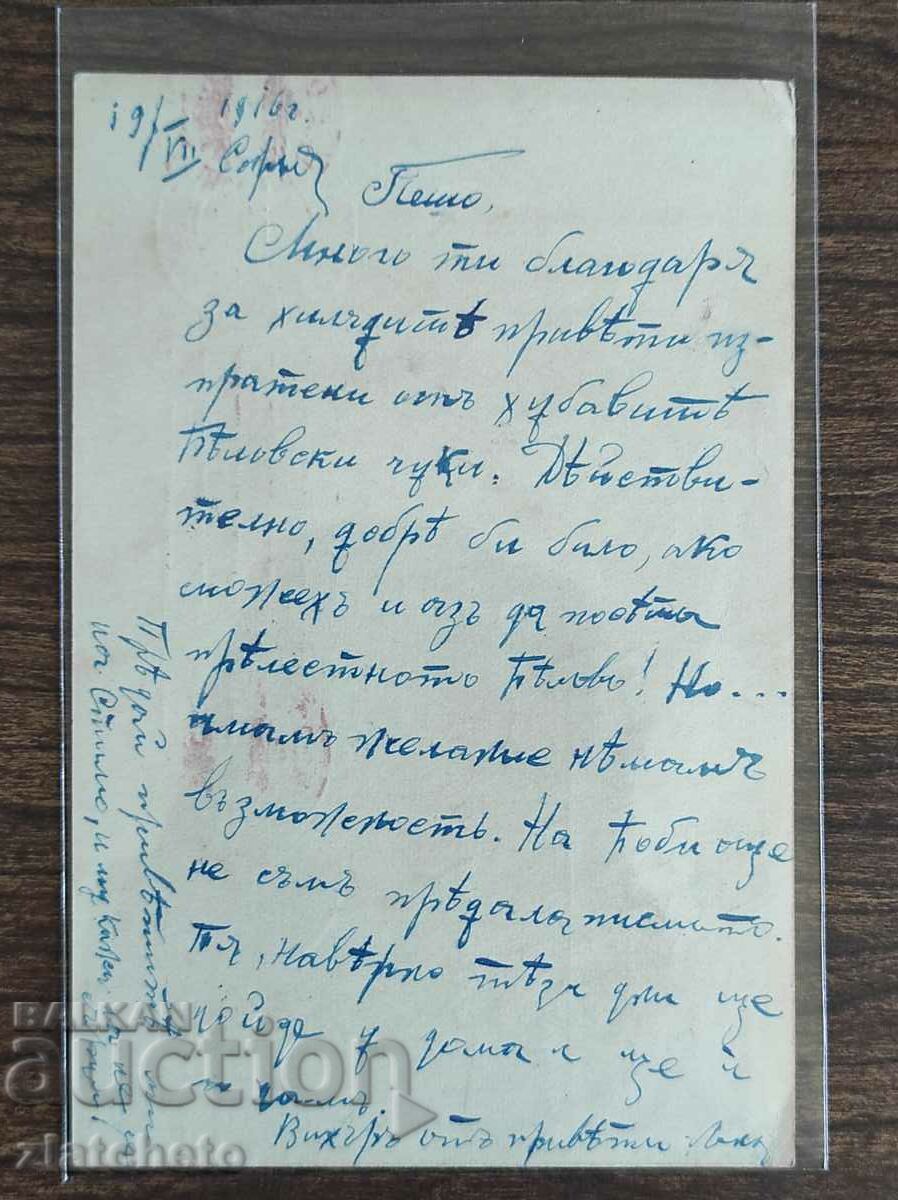 19/VII 1916 г.
София
Пешо,
Много ти благодаря
за хилядитѣ привѣти из-
пратени отъ хубавитѣ
Бѣловски чуки. Дѣйстви-
телно, добрѣ би било, ако
можехъ и азъ да посѣтя
прѣлестното Бѣлово! Но...
имамъ желание нѣмамъ
възможность. На Боби още
не съмъ прѣдала писмото.
Тя, навѣрно тѣзи дни ще
дойде у дома и ще ѝ
го дамъ.
Вихъръ отъ привѣти
Прѣдай привѣтитѣ ми
на Стилю, и му кажи да не
BALKAN
auction
zlatcheto